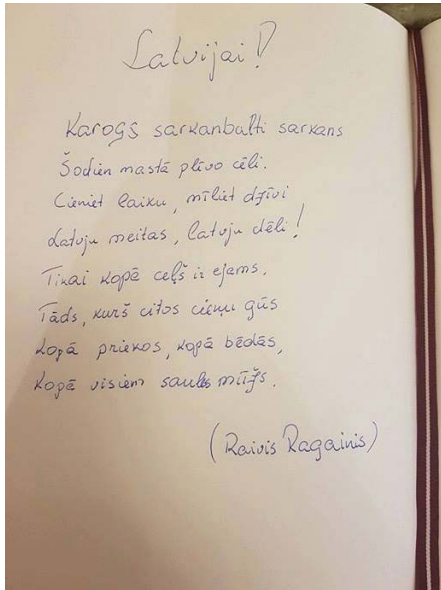 Latvijai!
Karogs sarkanbalti sarkans
Šodien mastā plīvo cēli.
Cieniet laiku, mīliet dzīvi
Latvju meitas, latvju dēli!
Tikai kopā ceļš ir ejams,
Tāds, kurš citos cieņu gūs
Kopā priekos, kopā bēdās,
Kopā visiem saules mūžs.
(Raivis Ragainis)